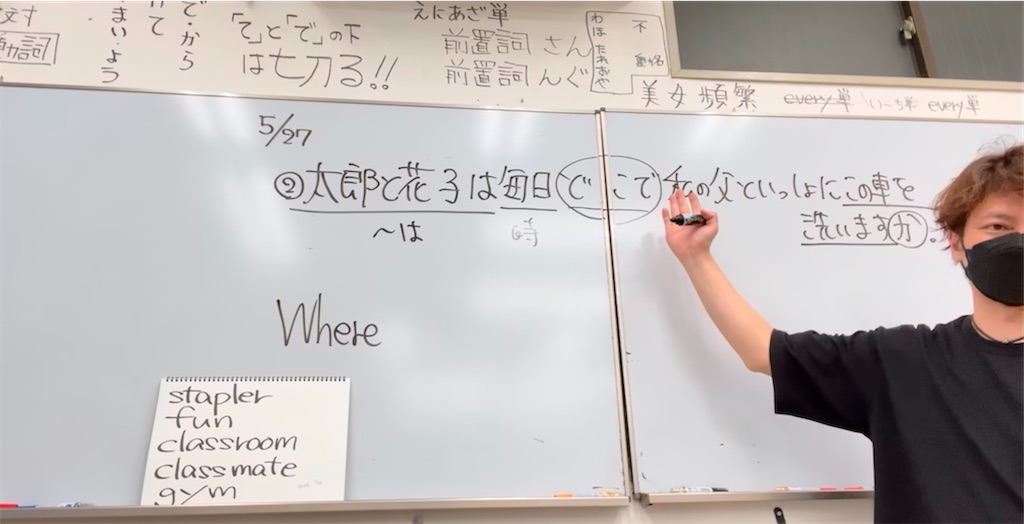 で・から
まい・よう
動詞
「て」と「で」の下
は七刀る!!
えにあざ単
前置詞 さん
前置詞 んぐ
不
美女頻繁 every単 いっち単 every単
5/27
②太郎と花子は毎日どこで私の父といっしょにこの車を
洗いますか。
～は
時
Where
stapler
fun
classroom
classmate
gym